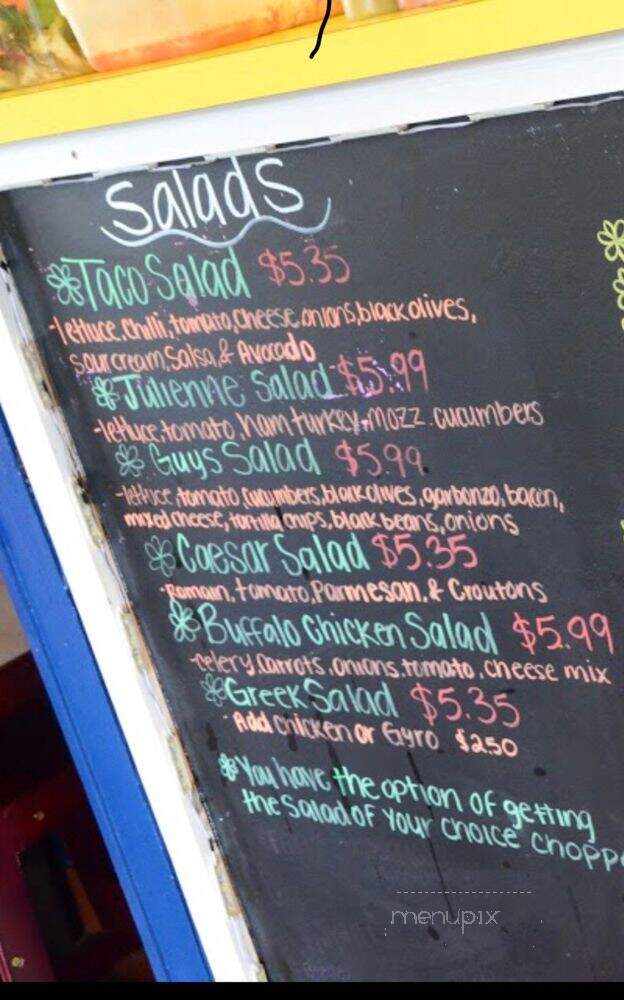 Salads
Taco Salad $5.35
-lettuce, chilli, tomato, cheese, onions, black olives,
sour cream, Salsa, & Avocado
Julienne Salad $5.99
-lettuce, tomato, ham turkey, mozz. cucumbers
Guys Salad $5.99
-lettuce, tomato, cucumbers, black olives, garbonzo, bacon,
mixed cheese, tortilla chips, black beans, onions
Caesar Salad $5.35
-Romain, tomato, Parmesan, & Croutons
Buffalo Chicken Salad $5.99
-celery, carrots, onions, tomato, cheese mix
Greek Salad $5.35
-Add chicken or Gyro $2.50
You have the option of getting
the Salad of your choice chopp
menupix